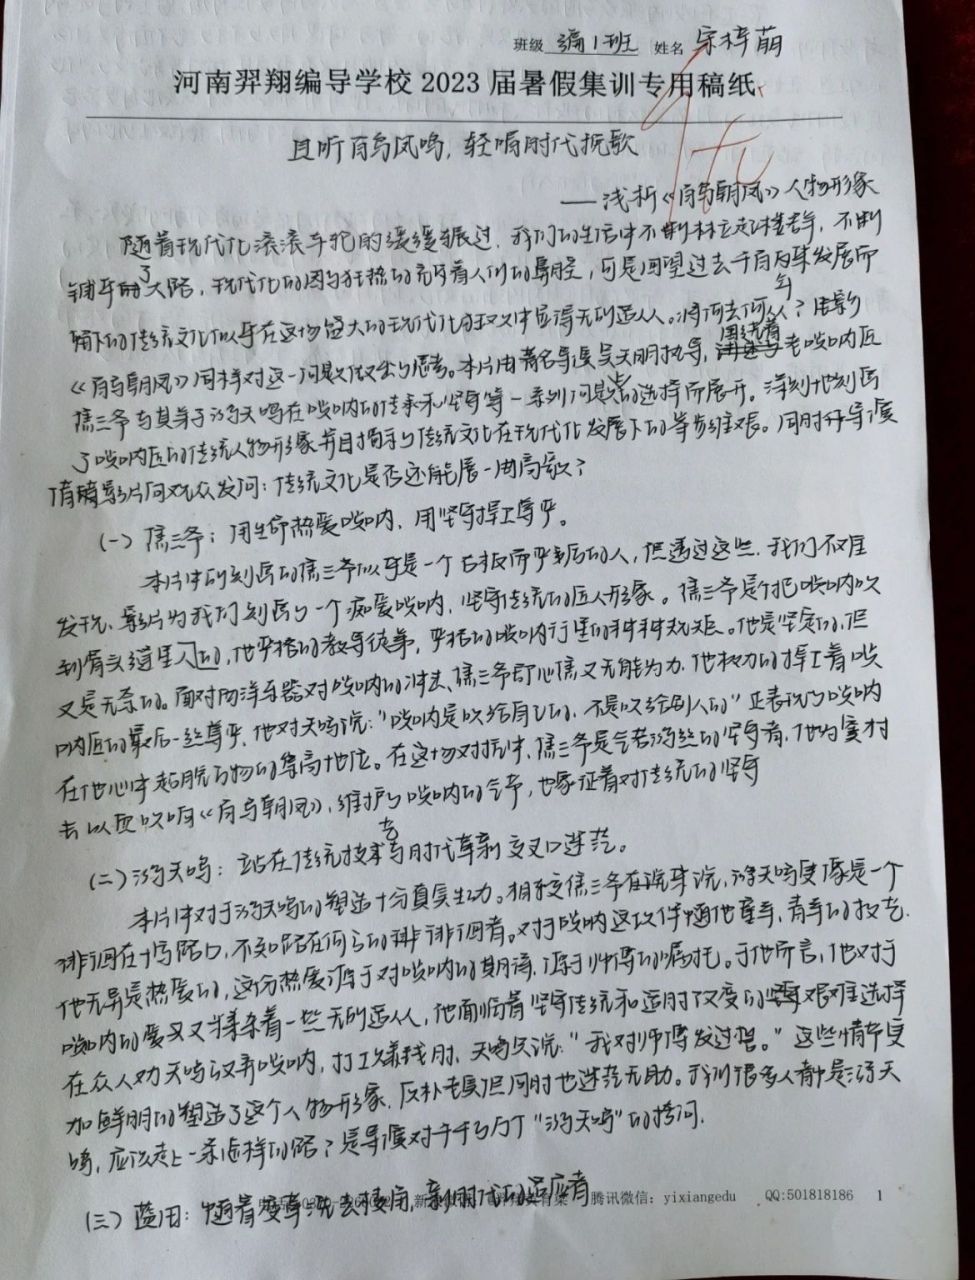 班级 编1班 姓名 宋梓萌
河南羿翔编导学校 2023 届暑假集训专用稿纸
且听百鸟凤鸣，轻唱时代挽歌
——浅析《百鸟朝凤》人物形象
随着现代化滚滚车轮的缓缓辗过，我们的生活中不断林立起楼群，不断
铺平了大路，现代化的因子狂热的充斥着人们的鼻腔，可是回望过去千百年来发展而
留下的传统文化似乎在这场盛大的现代化狂欢中显得无所适从。将何去何从？电影
《百鸟朝凤》同样对这一问题做出了思考。本片由著名导演吴天明执导，围绕着老唢呐匠
焦三爷与其弟子游天鸣在唢呐的传承和坚守等一系列问题的选择所展开。深刻地刻画
了唢呐匠的传统人物形象并且揭示了传统文化在现代化发展下的举步维艰。同时导演
借助影片向观众发问：传统文化是否还能展一曲高歌？
(一) 焦三爷：用生命热爱唢呐，用坚守捍卫尊严。
本片中所刻画的焦三爷似乎是一个古板而严厉的人，但透过这些，我们不难
发现，影片为我们刻画了一个痴爱唢呐，坚守传统的匠人形象。焦三爷是个把唢呐吹
到骨头缝里的人，他严格的教导徒弟，严格的唢呐行里的种种规矩。他是坚定的，但
又是无奈的。面对西洋乐器对唢呐的冲击，焦三爷即心焦又无能为力，他极力的捍卫着唢
呐匠的最后一丝尊严，他对天鸣说："唢呐是吹给自己的，不是吹给别人的"正表现了唢呐
在他心中超脱万物的崇高地位。在这场对抗中，焦三爷是气若游丝的坚守者，他为窦村
长以血吹响《百鸟朝凤》，维护了唢呐的气节，也象征着对传统的坚守
(二) 游天鸣：站在传统技艺与时代革新交叉口迷茫。
本片中对于游天鸣的塑造十分真实生动。相较焦三爷在说来说，游天鸣更像是一个
徘徊在十字路口，不知路在何方的徘徊者。对于唢呐这次伴随他童年，青年的技艺，
他无异是热爱的，这份热爱源于对唢呐的期待，源于师傅的嘱托。于他所言，他对于
唢呐的爱又又掺杂着一些无所适从，他面临着坚守传统和适时改变的艰难选择
在众人劝天鸣放弃唢呐，打工赚钱时，天鸣只说："我对师傅发过誓。"这些情节更
加鲜明的塑造了这个人物形象，反朴老实但同时也迷茫无助。我们很多人都是游天
鸣，应该走上一条怎样的路？是导演对千千万万个"游天鸣"的拷问。
(三) 蓝玉：随着变革洗去棱角，新时代的适应者
腾讯微信：yixiangedu QQ:501818186 1